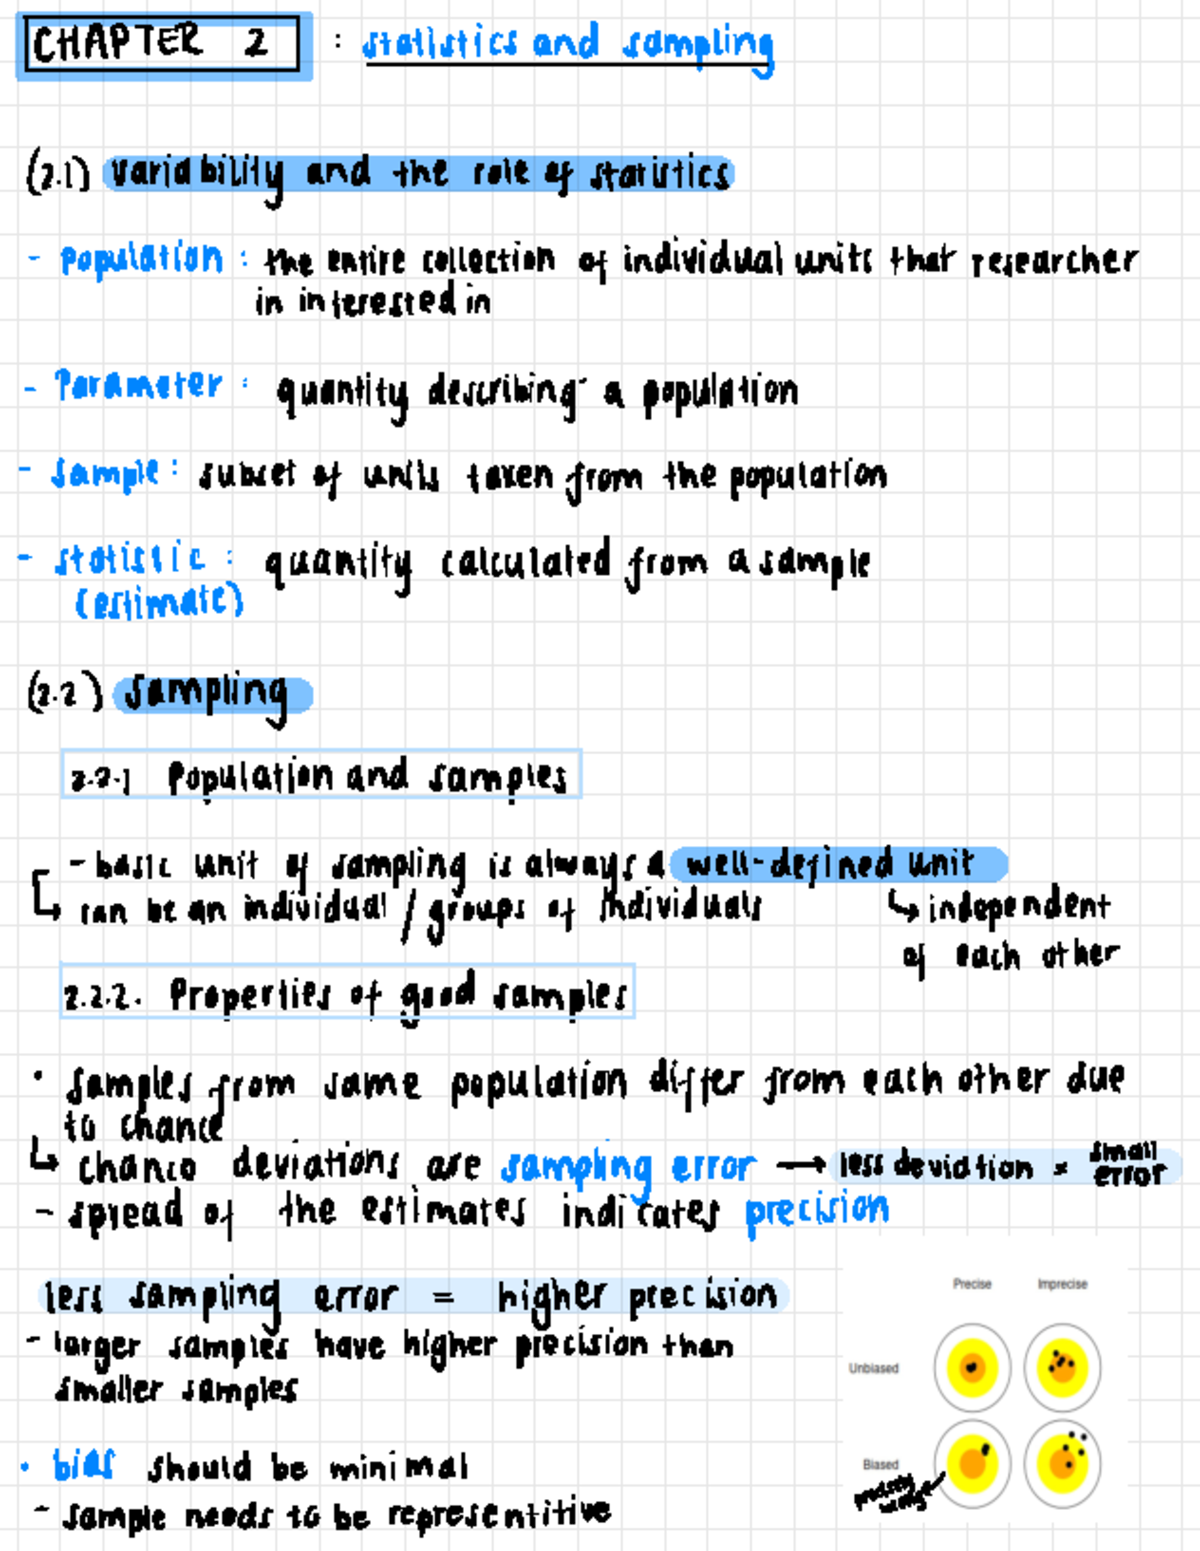 CHAPTER 2 : statistics and sampling
(2.1) variability and the role of statistics
- population : the entire collection of individual units that researcher
in interested in
- Parameter : quantity describing a population
- sample : subset of units taken from the population
- statistic : quantity calculated from a sample
(estimate)
(2.2) sampling
2.2.1 Population and samples
- basic unit of sampling is always a well-defined unit
↳ can be an individual / groups of individuals
↳ independent
of each other
2.2.2. Properties of good samples
• samples from same population differ from each other due
to chance
↳ chance deviations are sampling error → less deviation = small error
- spread of the estimates indicates precision
less sampling error = higher precision
- larger samples have higher precision than
smaller samples
Precise Imprecise
Unbiased
Biased
precisely wrong
• bias should be minimal
- sample needs to be representitive